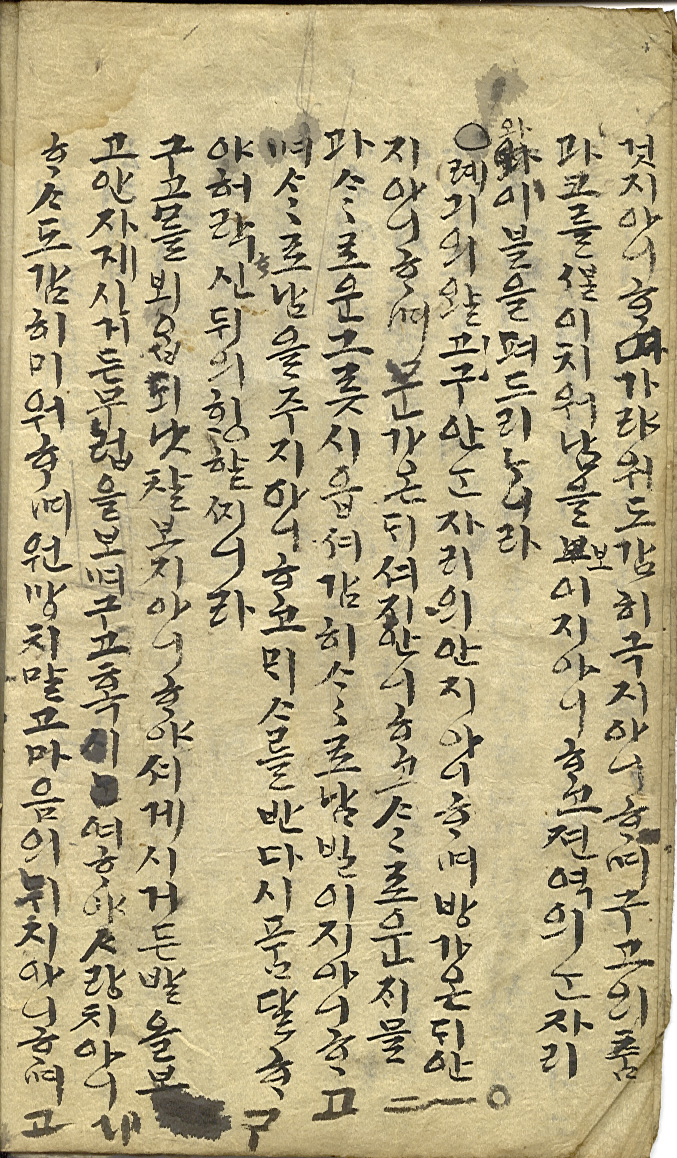 것지아니ᄒᆞ며가랴워도감히극지아니ᄒᆞ며구고의춤
과코를샐이치워남을보이지아니ᄒᆞ고젼역의ᄂᆞᆫ자리
와이블을펴드리ᄂᆞ니라
○례긔의왈긔구안ᄂᆞᆫ자리의안지아니ᄒᆞ며방가온ᄃᆡ안
지아니ᄒᆞ며문가온ᄃᆡ셔지안니ᄒᆞ고ᄉᆞᄉᆞ로운ᄌᆡ물
과ᄉᆞᄉᆞ로운그릇시읍셔감히ᄉᆞᄉᆞ로밤발이지아니ᄒᆞ고
며ᄉᆞᄉᆞ로남을주지아니ᄒᆞ고ᄆᆡᄉᆞ를반다시품달ᄒᆞ
야허락ᄒᆞ신뒤의ᄒᆡᆼᄒᆞᆯ찌니라
구고를뵈ᄋᆞᆸ되낫찰보지아니ᄒᆞ야셔게시거든발을보
고안자제시거든무럽을보며구고혹시여ᄒᆞ야ᄉᆞ랑치아니
ᄒᆞᄉᆞ도감히미워ᄒᆞ며원망치말고마음의뉘치아니ᄒᆞ며고